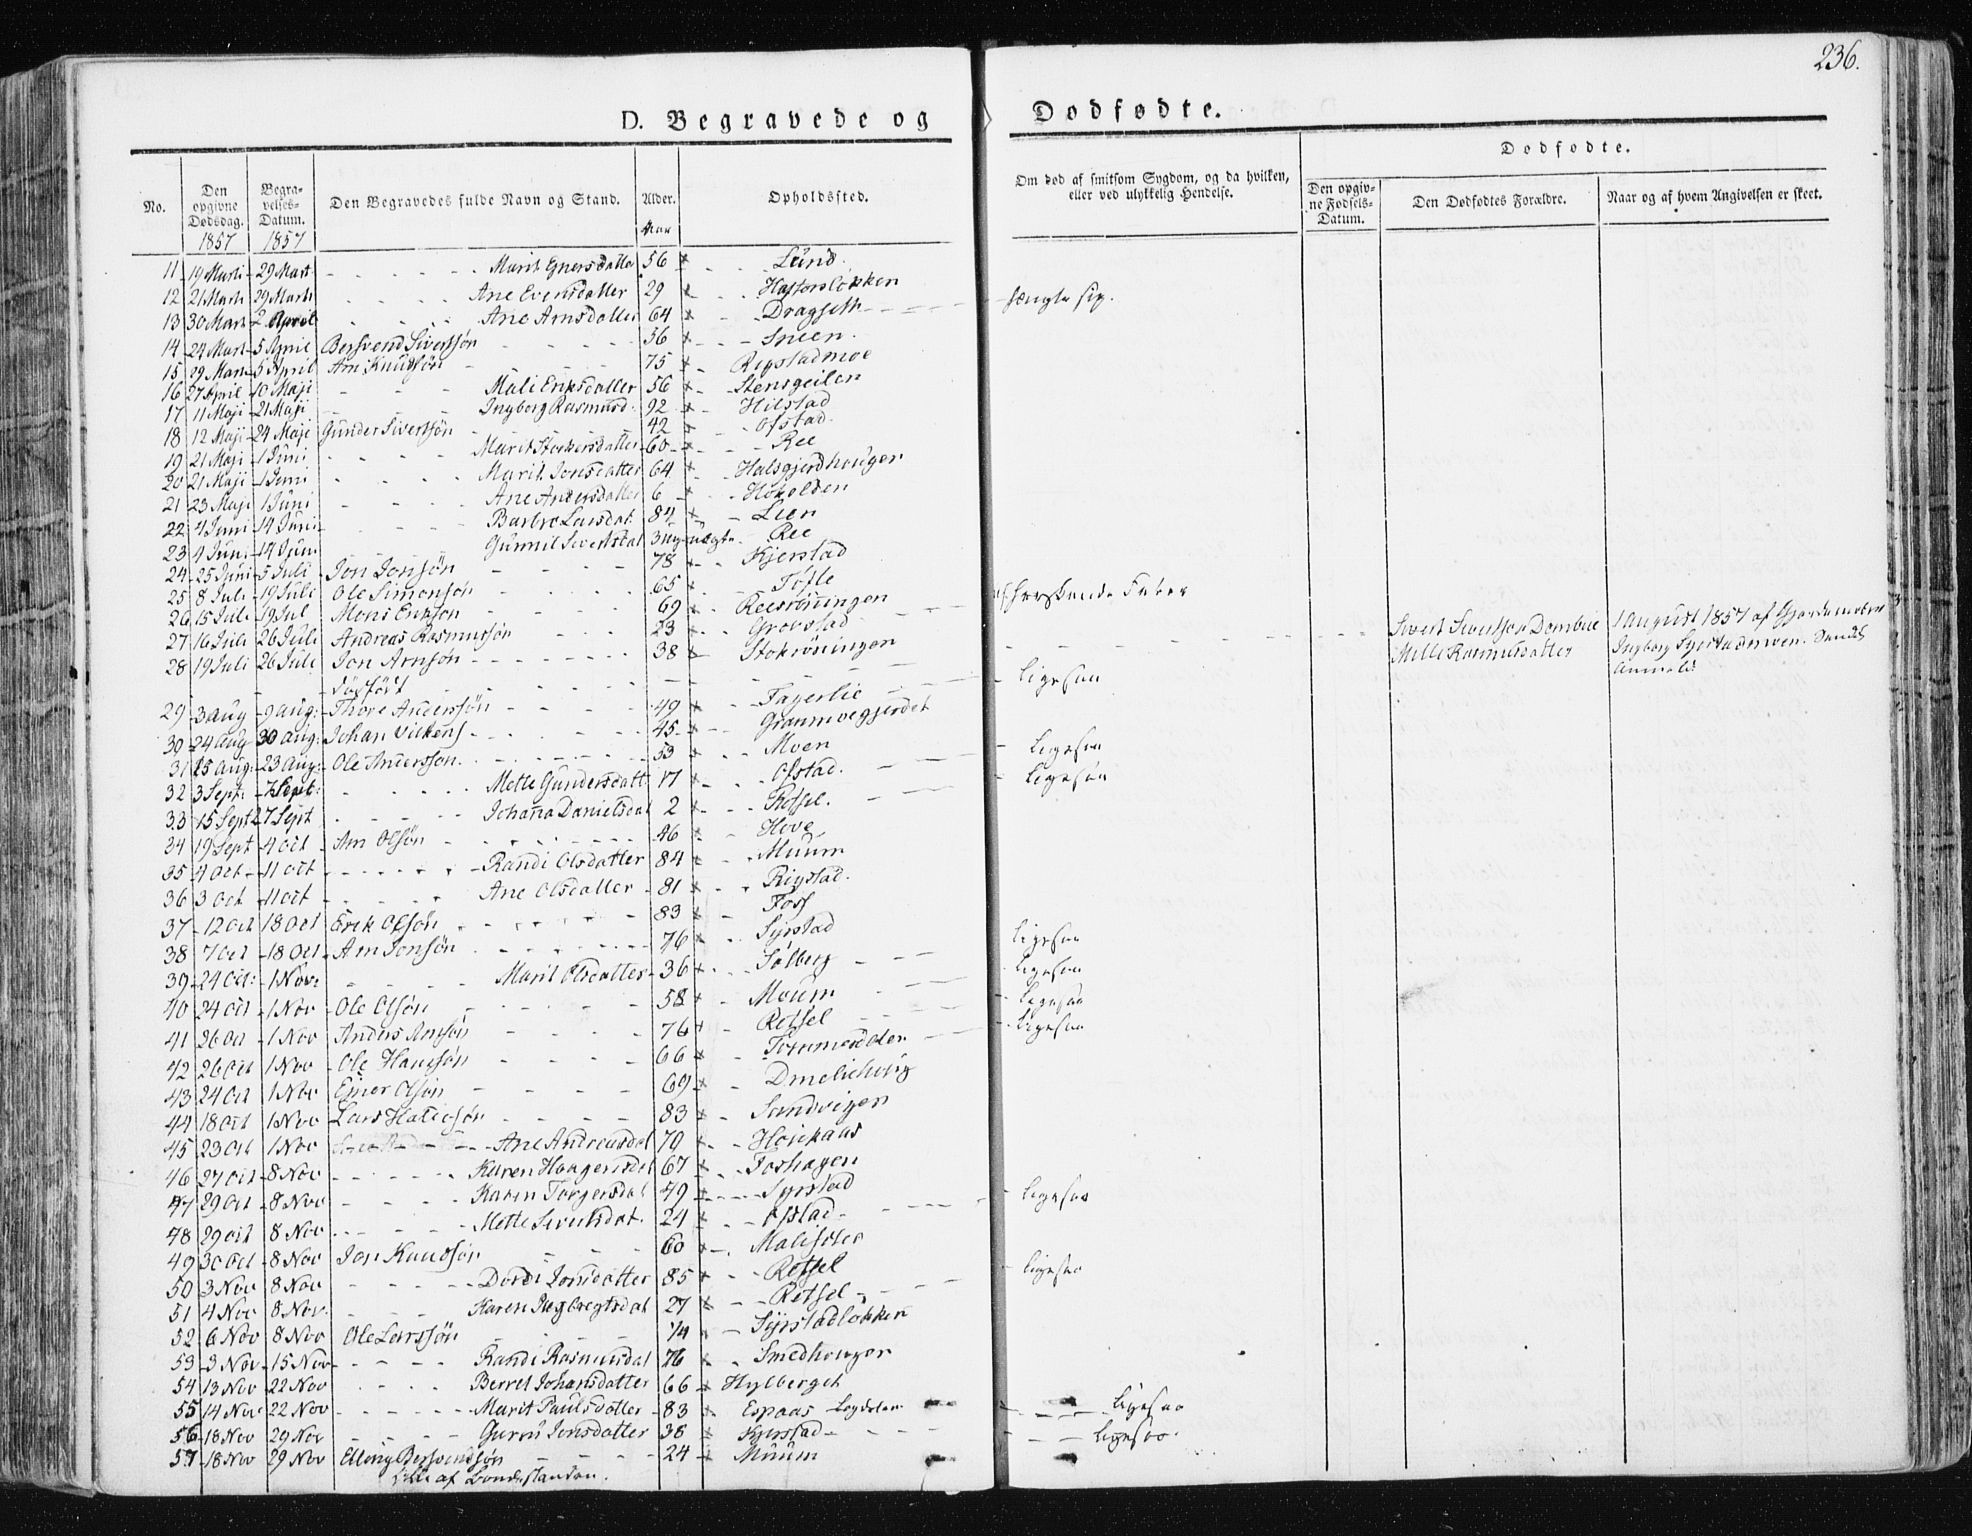 236.
D. Begravede og Dødfødte.
Dødfødte.
No.
Den opgivne Dødsdag.
Begravelses-Datum.
Den Begravedes fulde Navn og Stand.
Alder.
Opholdssted.
Om død af smitsom Sygdom, og da hvilken, eller ved ulykkelig Hendelse.
Den opgivne Fødsels-Datum.
Den Dødfødtes Forældre.
Naar og af hvem Angivelsen er skeet.
1857 1857 Aar
11 19 Marti 29 Mart Marit Eynersdatter 56 Lund
12 21 Marti 29 Marti Ane Evensdatter 29
13 30 Mart 2 April Ane Arnsdatter 64 Dragseth
14 24 Mart 5 April Bersvend Sivertsøn 56 Sneen
15 29 Mart 5 April Arn Knudsøn 75 Rigstadmoe
16 27 April 10 Maji Mali Eriksdatter 56 Stensgeilen
17 11 Maji 21 Maji Ingborg Rasmusd. 92 Hilstad
18 12 Maji 24 Maji Gunder Sivertsøn 42 Ofstad
19 21 Maji 1 Juni Marit 60 Ree
20 21 Maji 1 Juni Marit Jonsdatter 64 Halsgjerdhauger
21 23 Maji 1 Juni Ane Andersdatter 6
22 4 Juni 14 Juni Barbro Larsdat. 84 Lien
23 4 Juni 14 Juni Gunnil Sivertsdat 3 Ree
24 25 Juni 5 Juli Jon Jonsøn 78 Kjerstad
25 8 Juli 19 Juli Ole Simonsøn 65 Tøfte
26 15 Juli 19 Jul Mons Erikson 69 Reesrønningen herskende Feber
27 16 Juli 26 Juli Andreas Rasmussøn 23 Grovstad
28 19 Juli 26 Juli Jon Arnsøn 38 Stokrøningen
dødfødt Sivert Sivertsen 1 August 1857 af Gjordemoderen
Ingborg
ligesaa
29 3 Aug 9 Aug: Thore Andersøn 49 Fagerlie
30 24 Aug 30 Aug: Johan 45
31 15 Aug: 23 Aug: Ole Anderssøn 53 Moen ligesaa
32 3 Sept: 7 Sept: Mette Gundersdatt 17 Ofstad ligesaa
33 15 Sept 27 Sept Johana Danielsdat 2
34 19 Sept 4 Oct Arn Olsøn 46 Hove
35 4 Oct 11 Oct Randi Olsdatter 84 Muum
36 3 Oct 11 Oct Ane Olsdatter 81 Rigstad
37 12 Oct 18 Oct Erik Olsøn 83 Foss
38 7 Oct 18 Oct Arn Jonsøn 76 Syrstad ligesaa
39 24 Oct: 1 Nov: Marit Olsdatter 36 Sølberg ligesaa
40 24 Oct 1 Nov Ole Olsøn 58 Moum ligesaa
41 26 Oct 1 Nov Anders Arnsøn 76 Retsel ligesaa
42 26 Oct 1 Nov Ole Hansøn 66
43 24 Oct 1 Nov Ejner Olsøn 69
44 18 Oct 1 Nov Lars 83 Sandvigen
45 23 Oct 1 Nov Ane Andreasdat 70
46 27 Oct 8 Nov Karen Haagensdat 67 Foshagen
47 29 Oct 8 Nov Karen Torgersdat 49 Syrstad ligesaa
48 29 Oct 8 Nov Mette Sivertsdat. 24 Ofstad
49 30 Oct 8 Nov Jon Knudsøn 60
50 3 Nov 8 Nov Dordi Jonsdatter 85 Retsel ligesaa
51 4 Nov 8 Nov. Karen Ingbregtsdat 27 Retsel
52 6 Nov 8 Nov Ole Larssøn 14 Syrstadløkken
53 3 Nov 15 Nov Randi Rasmusdat 76 Smedhouger
54 13 Nov 22 Nov Berret Johansdatter 66 Hylberget
55 14 Nov 22 Nov Marit Paulsdatter 83 Espaas ligesaa
56 18 Nov 29 Nov Gurru Jonsdatter 38 Kjerstad ligesaa
57 18 Nov 29 Nov Elling Bersvendsøn 24 Muum
alle af Bondestanden.